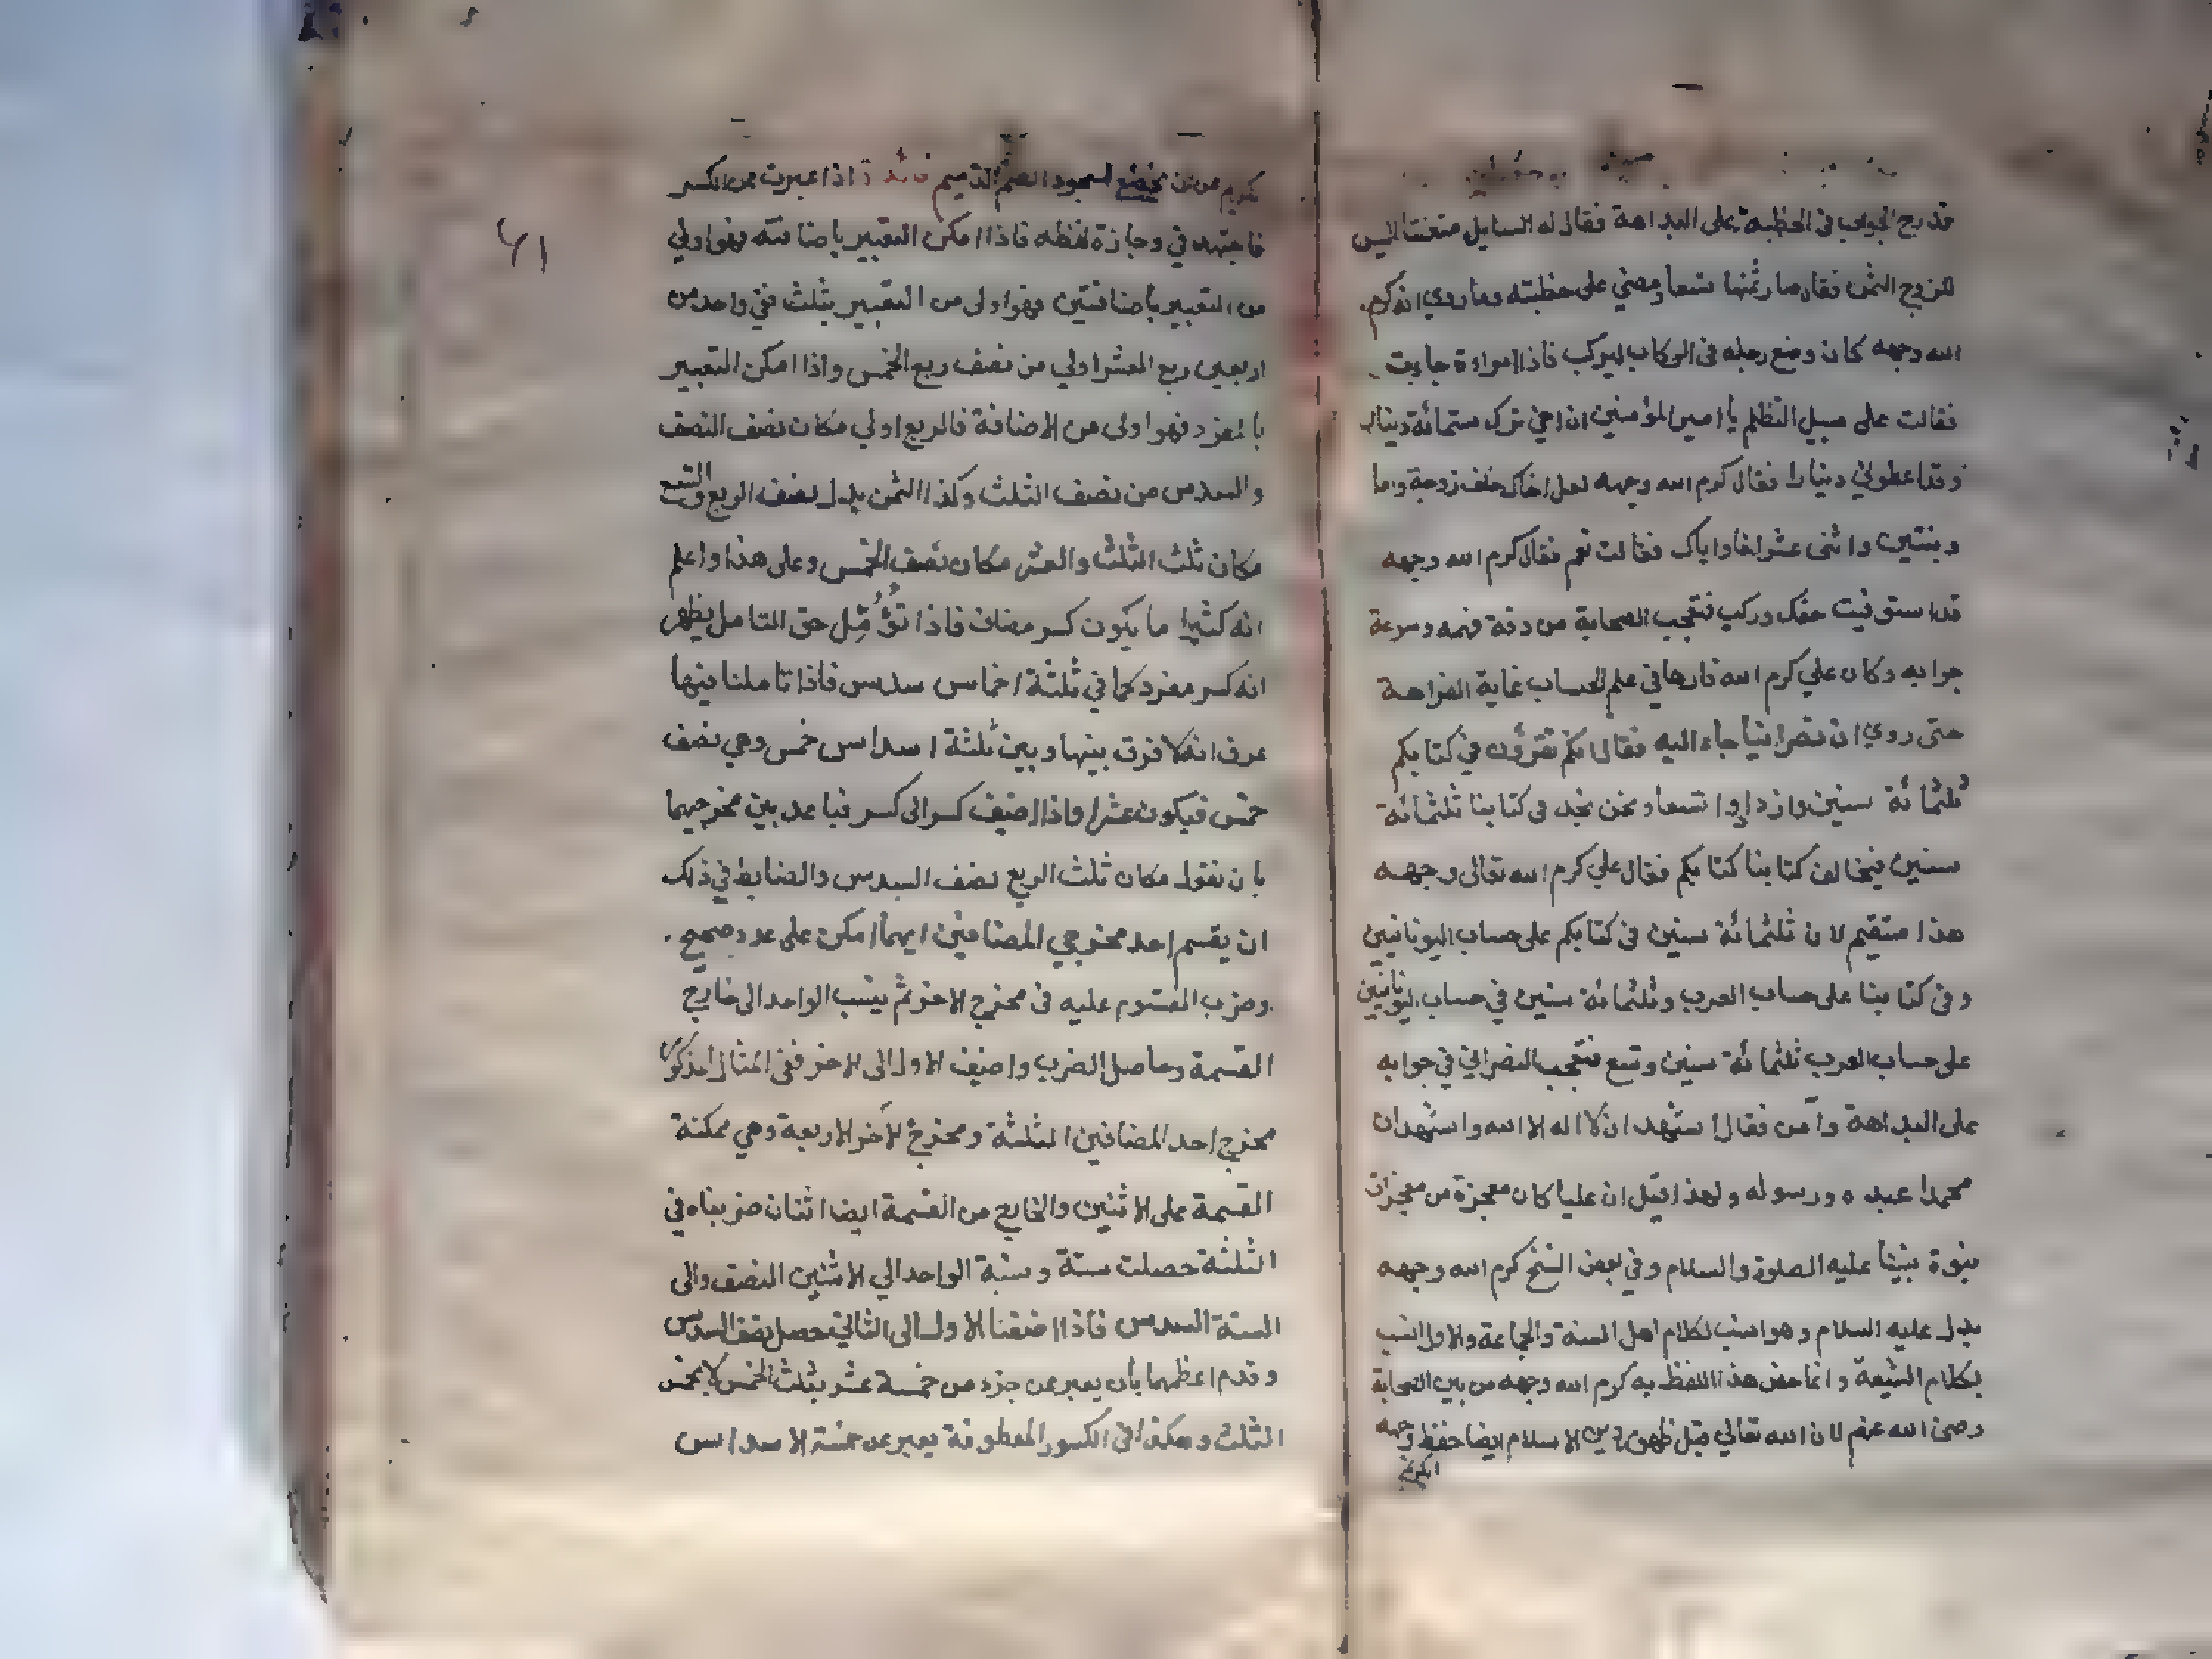 قدرج الجواب في الخطبة على البداهة فقال له السايل متعنتا اليس
للزوج الثمن فقال صار ثمنها تسعا ومضي على خطبته وما روي انه كرم
الله وجهه كان وضع رجله في الركاب ليركب فاذا امراءة جاءت
فقالت على سبيل التظلم يا امير المؤمنين ان اخي ترك ستمائة دينار
وقد اعطوني دينارا فقال كرم الله وجهه لعل اخاك خلف زوجة واما
وبنتين واثنى عشر اخا واياك فقالت نعم فقال كرم الله وجهه
قد استوفيت حقك وركب فتعجب الصحابة من دقة فهمه وسرعة
جوابه وكان علي كرم الله فارها في علم الحساب غاية الفراهة
حتى روي ان نصرانيا جاء اليه فقال انكم تقرؤن في كتابكم
ثلثمائة سنين وازدادوا تسعا ونحن نجد في كتابنا ثلثمائة
سنين فيخالف كتابنا كتابكم فقال علي كرم الله تعالى وجهه
هذا مستقيم لان ثلثمائة سنين في كتابكم على حساب اليونانيين
وفي كتابنا على حساب العرب وثلثمائة سنين في حساب اليونانيين
على حساب العرب ثلثمائة سنين وتسع فتعجب النصراني في جوابه
على البداهة وآمن فقال اشهد ان لا اله الا الله واشهد ان
محمدا عبده ورسوله ولهذا قيل ان عليا كان معجزة من معجزات
نبوة نبينا عليه الصلوة والسلام وفي بعض النسخ كرم الله وجهه
بدل عليه السلام وهو انسب لكلام اهل السنة والجماعة والاول انسب
بكلام الشيعة وانما خص هذا اللفظ به كرم الله وجهه من بين الصحابة
رضى الله عنهم لان الله تعالي قبل ظهور دين الاسلام ايضا حفظ وجهه
الكريم
٤١
تكريم عن ان يخضع لسجود الصنم الذميم فائدة اذا عبرت عن الكسر
فاجتهد في وجازة لفظه فاذا امكن التعبير باضافة فهو اولي
من التعبير باضافتين فهو اولى من التعبير بثلث ففي واحد من
اربعين ربع العشر اولي من نصف ربع الخمس واذا امكن التعبير
بالمفرد فهو اولى من الاضافة فالربع اولي مكان نصف النصف
والسدس من نصف الثلث وكذا الثمن بدل نصف الربع والتسع
مكان ثلث الثلث والعشر مكان نصف الخمس وعلى هذا واعلم
انه كثيرا ما يكون كسر مضاف فاذا تؤمل حق التامل يظهر
انه كسر مفرد كما في ثلثة اخماس سدس فاذا تاملنا فيها
عرف انه لا فرق بينها وبين ثلثة اسداس خمس وهي نصف
خمس فيكون عشرا واذا اضيف كسر الى كسر فباعد بين مخرجيهما
بان نقول مكان ثلث الربع نصف السدس والضابط في ذلك
ان يقسم احد مخرجي المضافين ايهما امكن على عدد صحيح
وضرب المقسوم عليه في مخرج الاخر ثم ينسب الواحد الى خارج
القسمة وحاصل الضرب واضيف الاول الى الاخر ففي المثال المذكور
مخرج احد المضافين الثلثة ومخرج الآخر الاربعة وهي ممكنة
القسمة على الاثنين والخارج من القسمة ايضا اثنان ضربناه في
الثلثة حصلت ستة ونسبة الواحد الي الاثنين النصف والى
الستة السدس فاذا اضفنا الاول الى الثاني حصل نصف السدس
وقدم اعظمهما بان يعبر عن جزء من خمسة عشر بثلث الخمس لا بخمس
الثلث وهكذا في الكسور المعطوفة يعبر عن خمسة الاسداس